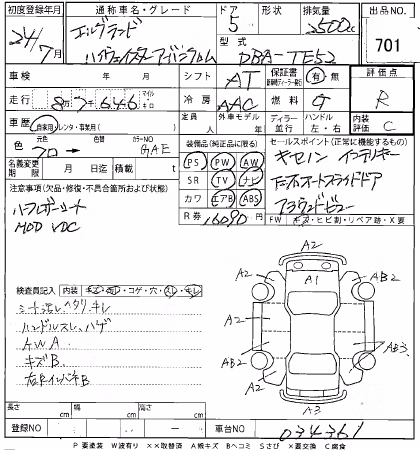 初度登録年月 通称車名・グレード ドア 形状 排気量 出品NO
24/7月 エルグランド 5 2500cc 701
ハイウェイスターアーバンクロム 型式 DBA-TE52
車検 年 月 シフト AT 保証書 有・無 評価点
走行 8万7646 マイル キロ 冷房 AAC 燃料 G R
車歴 自家用・レンタ・事業用( ) 定員 人 外車モデル 年 ディーラー 並行 ハンドル 左・右 内装評価 C
色 クロ→ カラーNO GAE 装備品(純正品に限る) セールスポイント(正常に機能するもの)
名義変更期限 月 日迄 積載量 t PS PW AW キセノン インテリキー
注意事項(欠品・修復・不具合箇所および状態) SR TV ナビ 両オートスライドドア
ハーフレザーシート カワ エアB ABS アラウンドビュー
MOD VDC R券 16090円 FW キズ・ヒビ割・リペア跡・X要
検査員記入 内装 キズ・汚レ・コゲ・穴・スレ・キレ
シート汚レヘタリキレ
ハンドルスレ、ハゲ
AWA
キズB
左右インパネB
A2 A1 A2 AB2
A2 A2
AB2 AB2
A2 A3 A2
長さ cm 幅 cm 高さ cm
登録NO ー 車台NO 034361
P 要塗装 W波有り ××取替済 A線キズ Bヘコミ Sさび ×要交換 C腐食